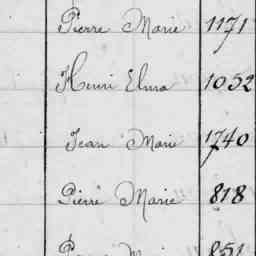 Pierre Marie 1171
Henri Elma 1052
Jean Marie 1740
Pierre Marie 818
Marie 851